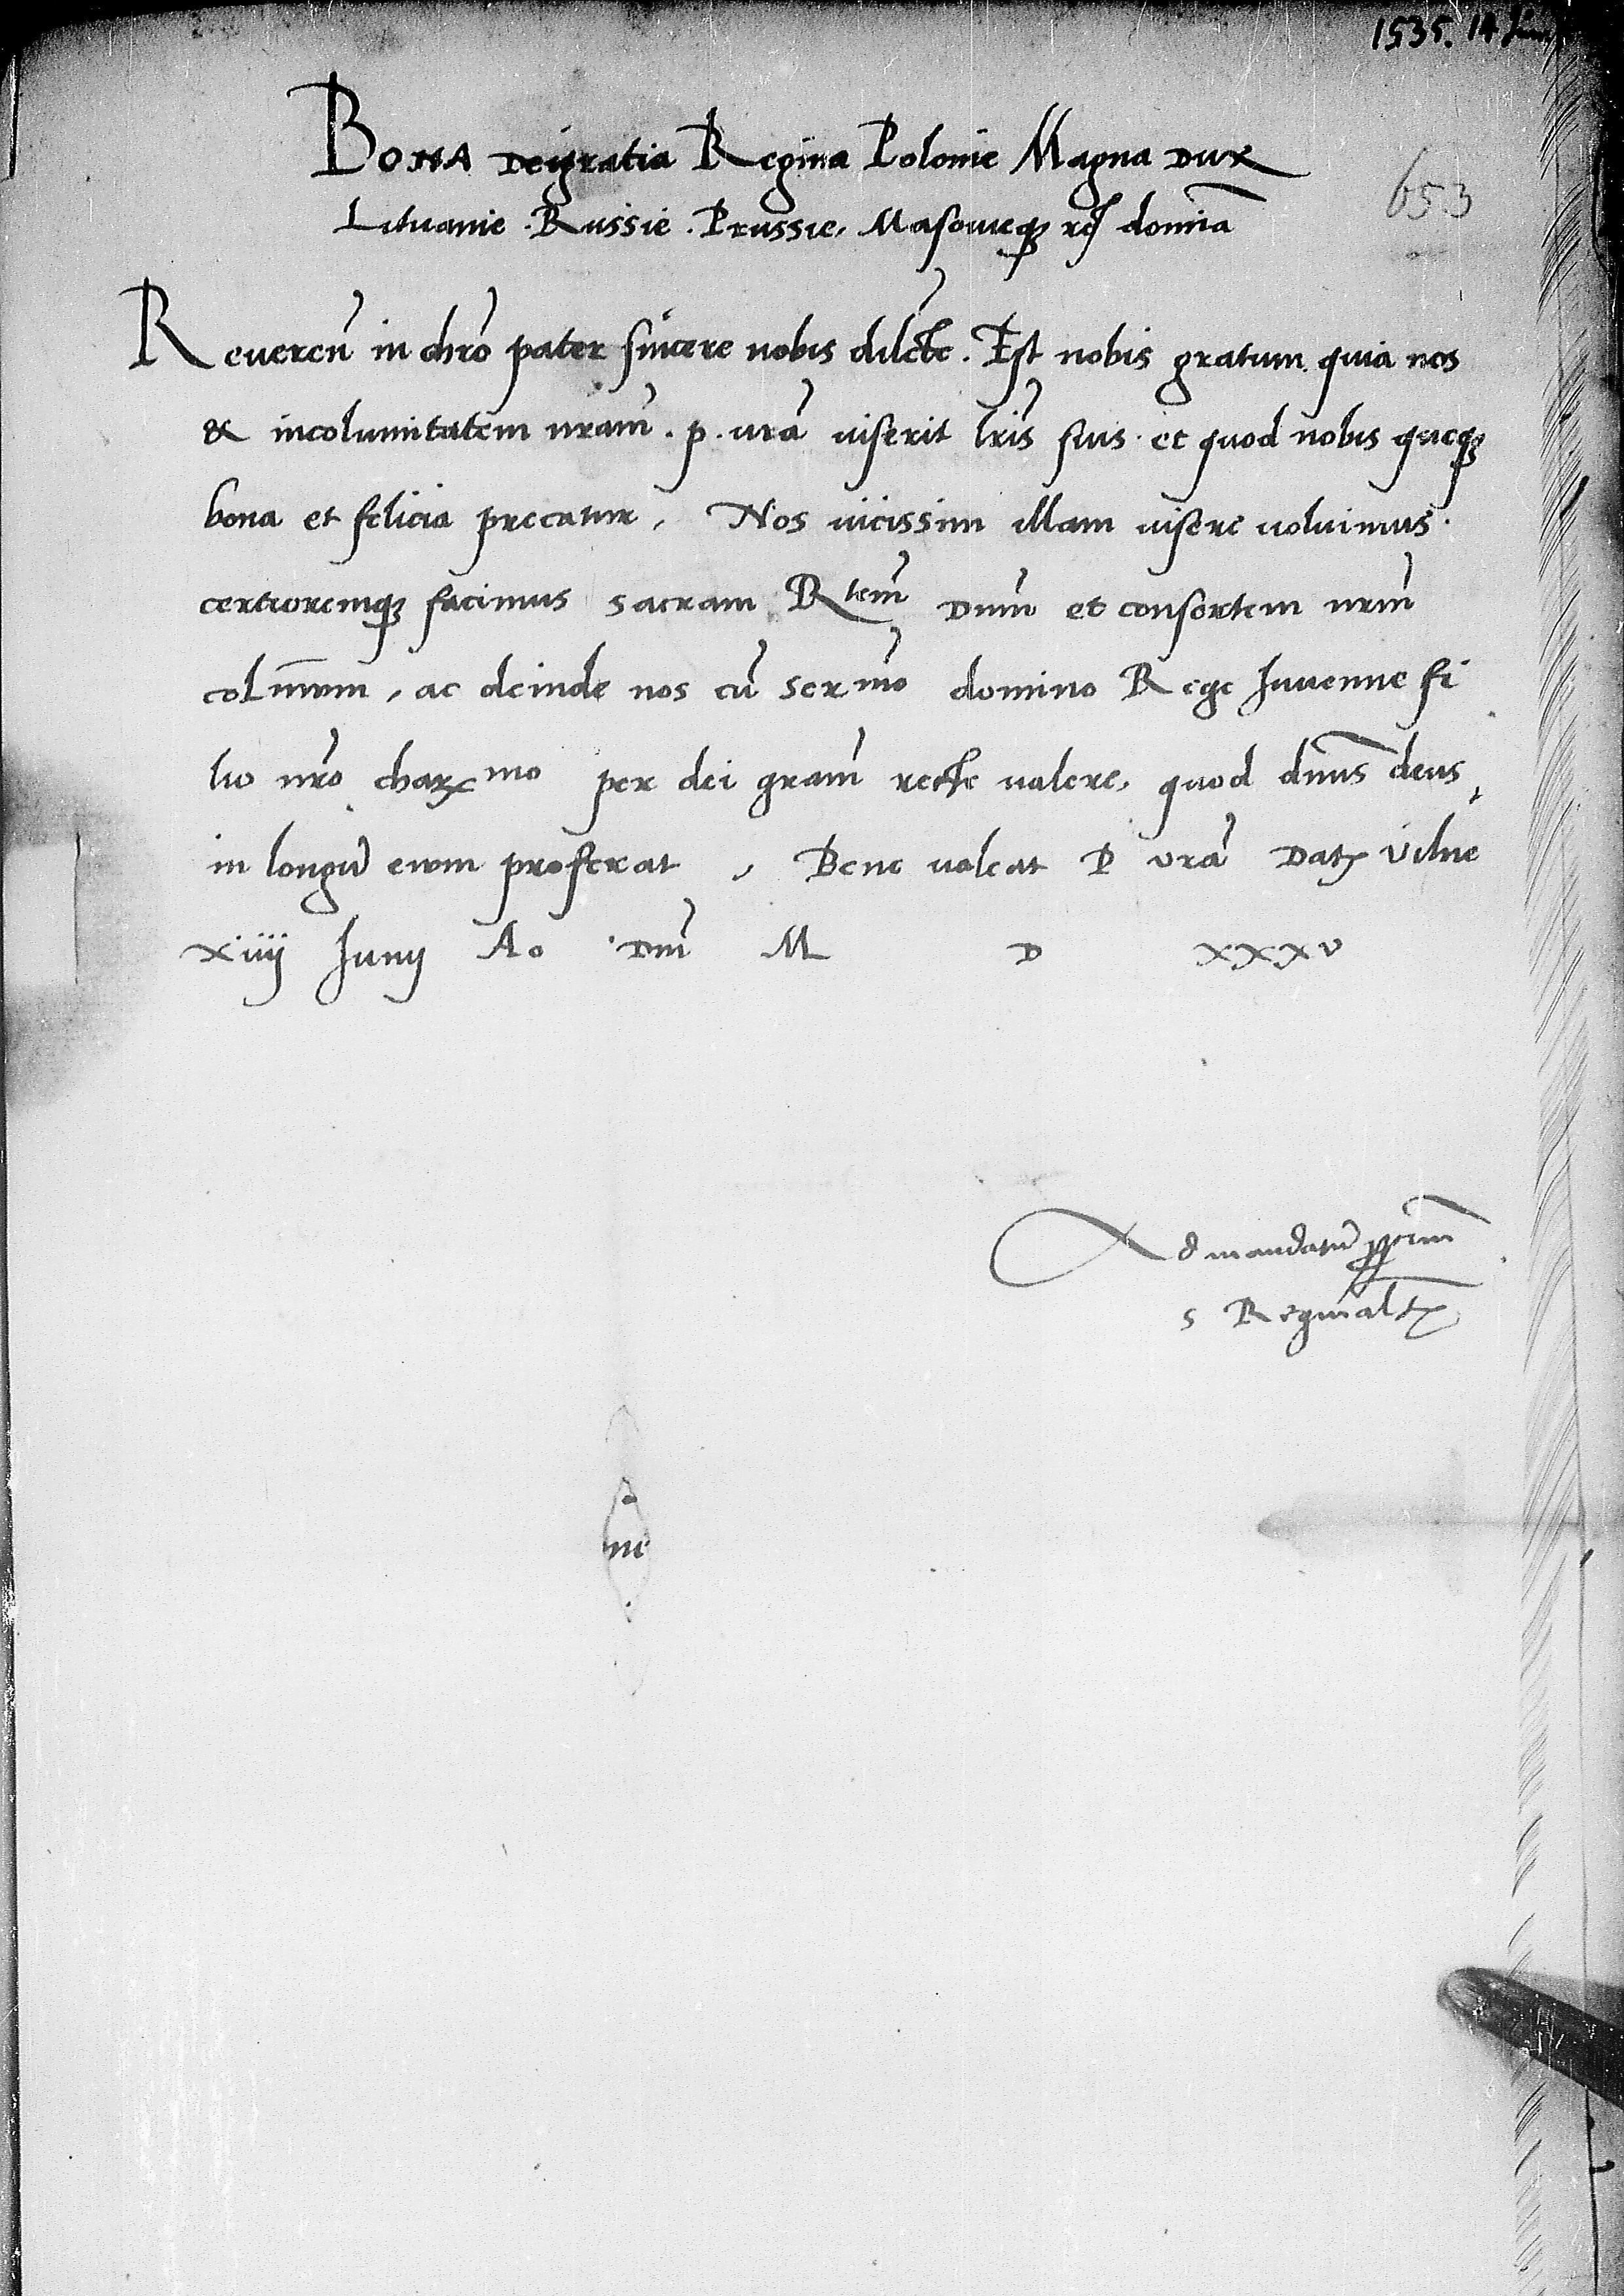 1535. 14 Jun.
BONA Dei gratia Regina Polonie Magna Dux
653
Lituanie. Russie. Prussie, Masouieq(ue) rc̃ domĩa
Reueren̄ in chro̅ pater sincere nobis dilcte. Est nobis gratum quia nos
& incolumitatem nram̅. p. vra̅ viserit lris̅ suis et quod nobis queq(ue)
bona et felicia precatur, Nos vicissim illam visere voluimus.
certioremq(ue) facimus sacram Rtem̅ Dnm̅ et consortem nrm̅
col̅mum, ac deinde nos cu̅ Sermo̅ domino Rege Iuvenne fi
lio nro̅ char mo per dei gram̅ recte valere, quod dn̅us deus
in longu̅ euum proferat, Bene valeat P vra̅ Dat Vilne
xiiij Iunij Ao Dni̅ M D XXXV
Ad mandatu̅ ppriu̅m
S Reginal
ne